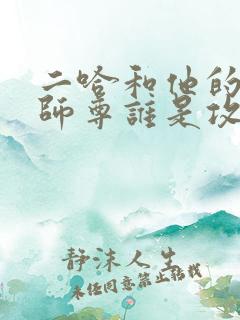 二哈和他的
師尊誰是攻
静沫人生
未经同意禁止转载